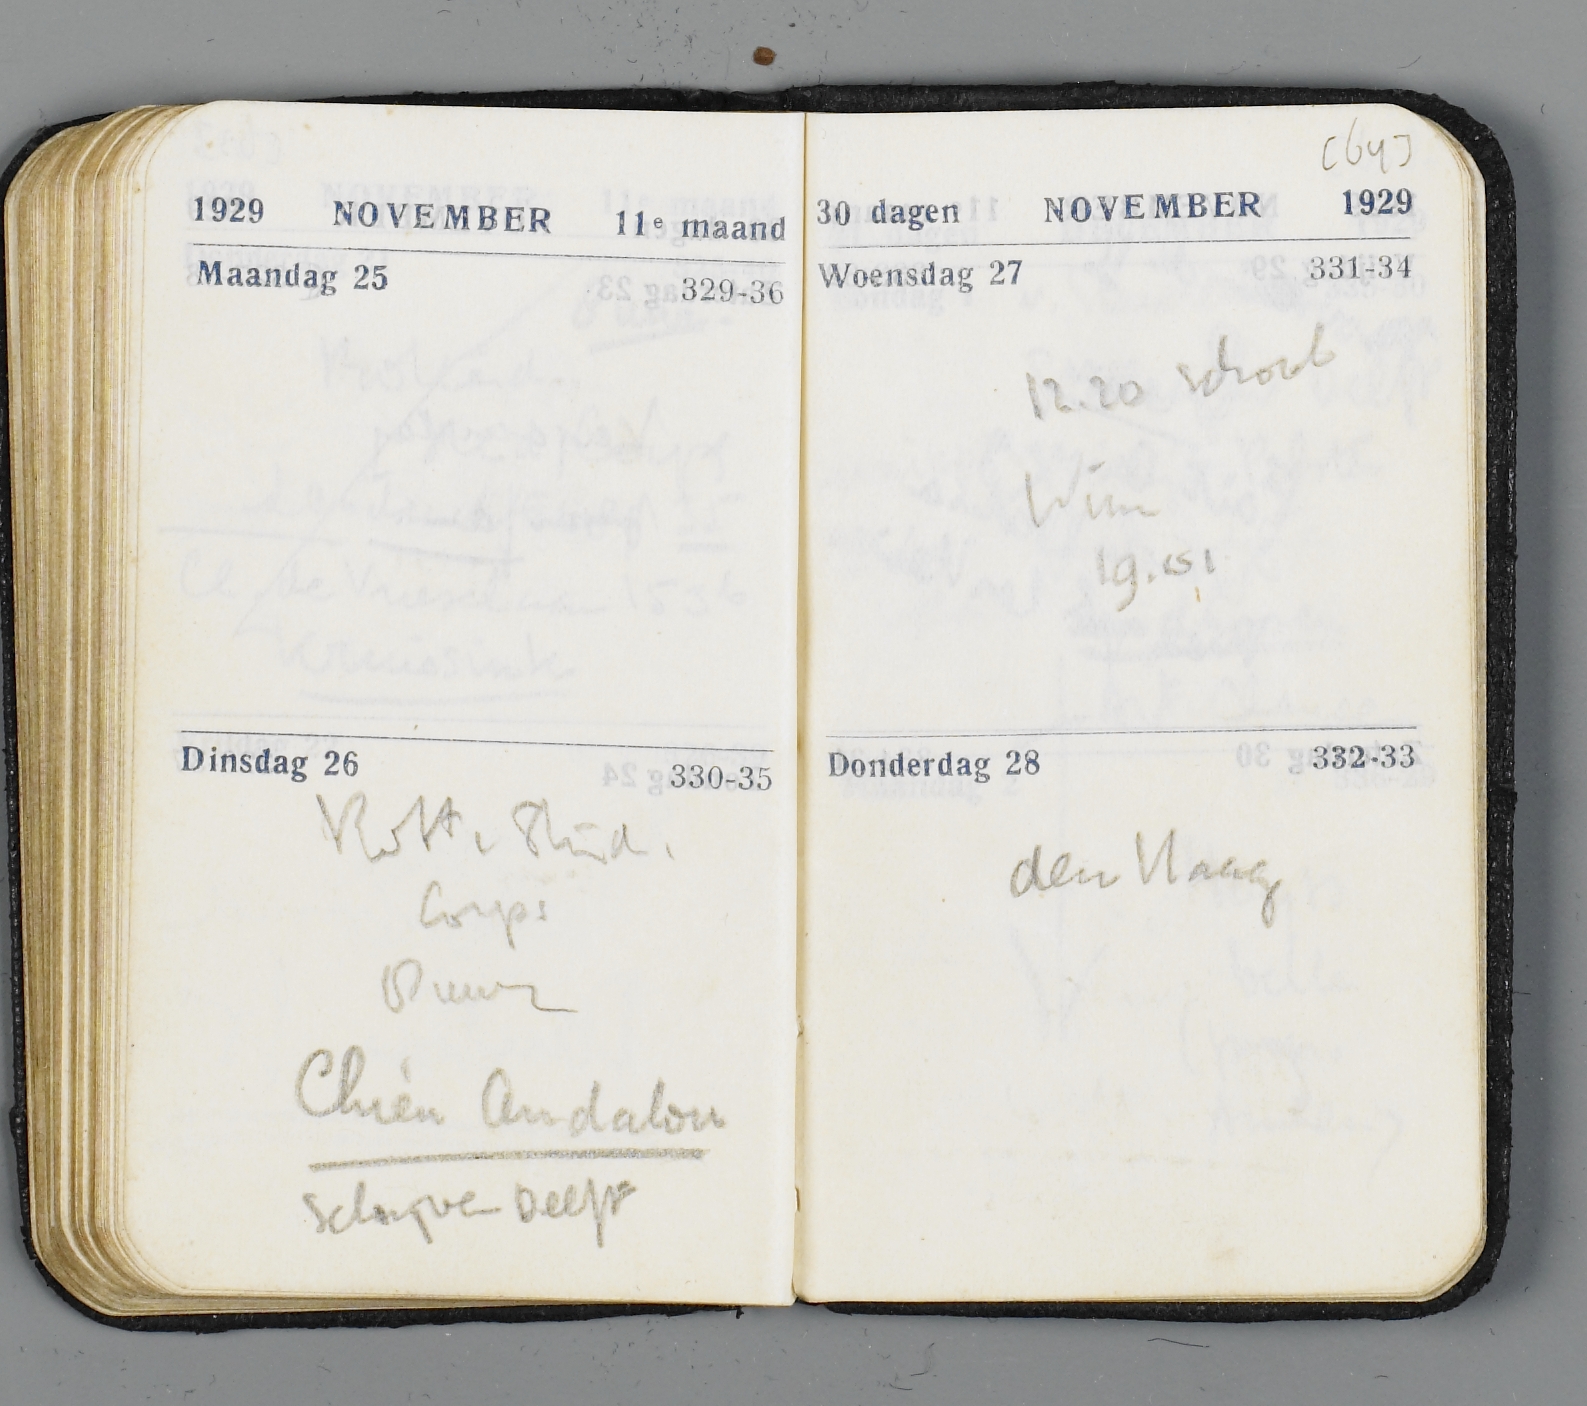 1929 NOVEMBER 11e maand
Maandag 25 329-36
Dinsdag 26 330-35
Rott. Stud.
Corps
Chien Andalou
Schrijven Delft
[64]
30 dagen NOVEMBER 1929
Woensdag 27 331-34
12.20 school
Wim
19.51
Donderdag 28 332-33
den Haag